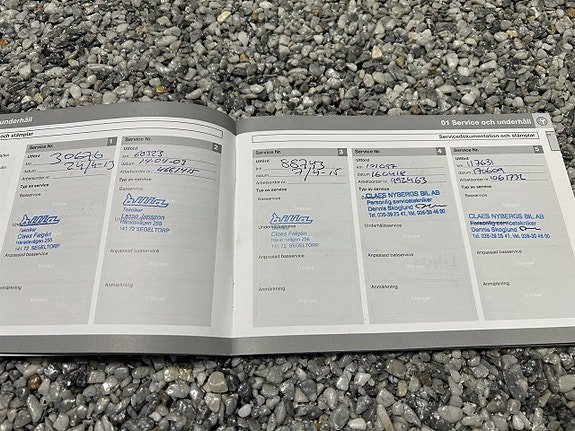 underhåll
och stämplar
Service Nr. 1
Utförd
30676
24/4-13
Arbetsorder nr
Typ av service
Tekniker
Claes Falgén
Häradsvägen 255
141 72 SEGELTORP
Anpassad basservice
Anmärkning
Stämpel
Service Nr. 2
Utförd
km 60323
datum 14-01-09
Arbetsorder nr 4661415
Typ av service
Basservice
Tekniker
Lasse Jansson
Häradsvägen 255
141 72 SEGELTORP
Anpassad basservice
Anmärkning
Stämpel
01 Service och underhåll
Servicedokumentation och stämplar
Service Nr. 3
Utförd
km 88743
datum 9/4-15
Arbetsorder nr
Typ av service
Basservice
Tekniker
Claes Falgén
Häradsvägen 255
141 72 SEGELTORP
Anpassad basservice
Anmärkning
Stämpel
Service Nr. 4
Utförd
km 101097
datum 160418
Arbetsorder nr 992463
Typ av service
CLAES NYBERGS BIL AB
Personlig servicetekniker
Dennis Skoglund
Tel. 036-39 25 41, Vxl. 036-39 46 00
Underhållsservice
Anpassad basservice
Anmärkning
Stämpel
Service Nr. 5
Utförd
km 117631
datum 170609
Arbetsorder nr 1061772
Typ av service
Basservice
CLAES NYBERGS BIL AB
Personlig servicetekniker
Dennis Skoglund
Tel. 036-39 25 41, Vxl. 036-39 46 00
Anpassad basservice
Anmärkning
Stämpel